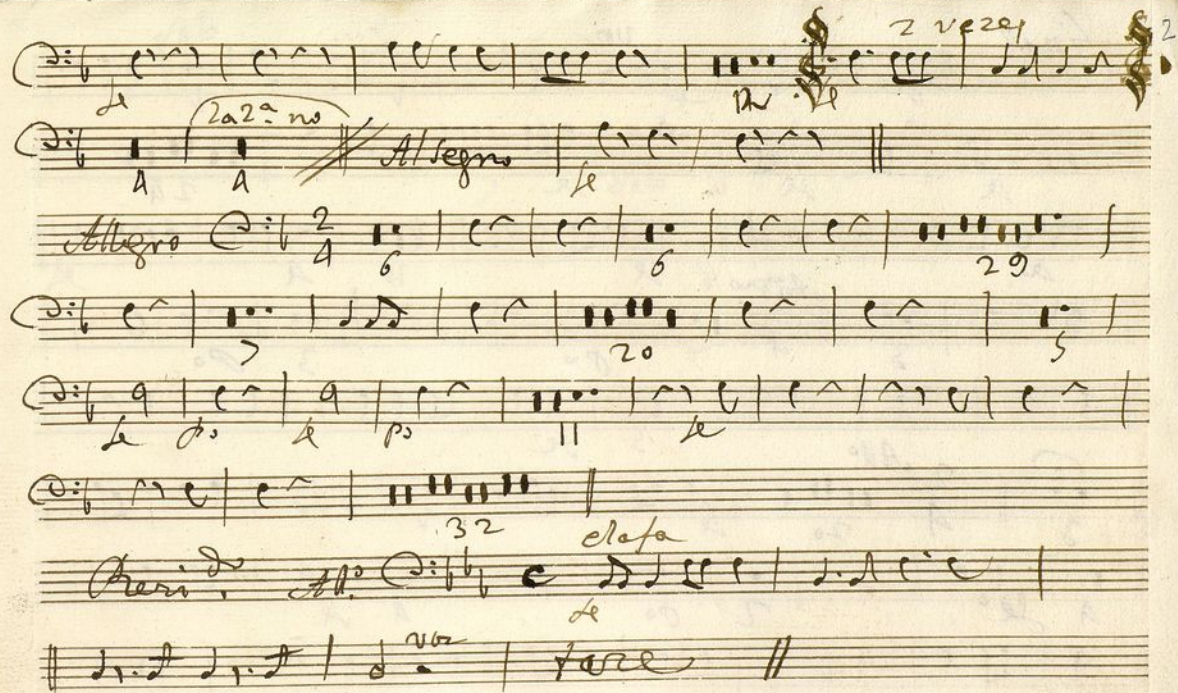 2 vezes 2
fe Pº fe
2a 2ª no
4 4 Al Segno fe
Allegro 2 4 6 6 29
7 20 5
fe pº fe pº 11 fe
32
elafa
Reziᵈᵒ. Allº. c
fe
voz
taze